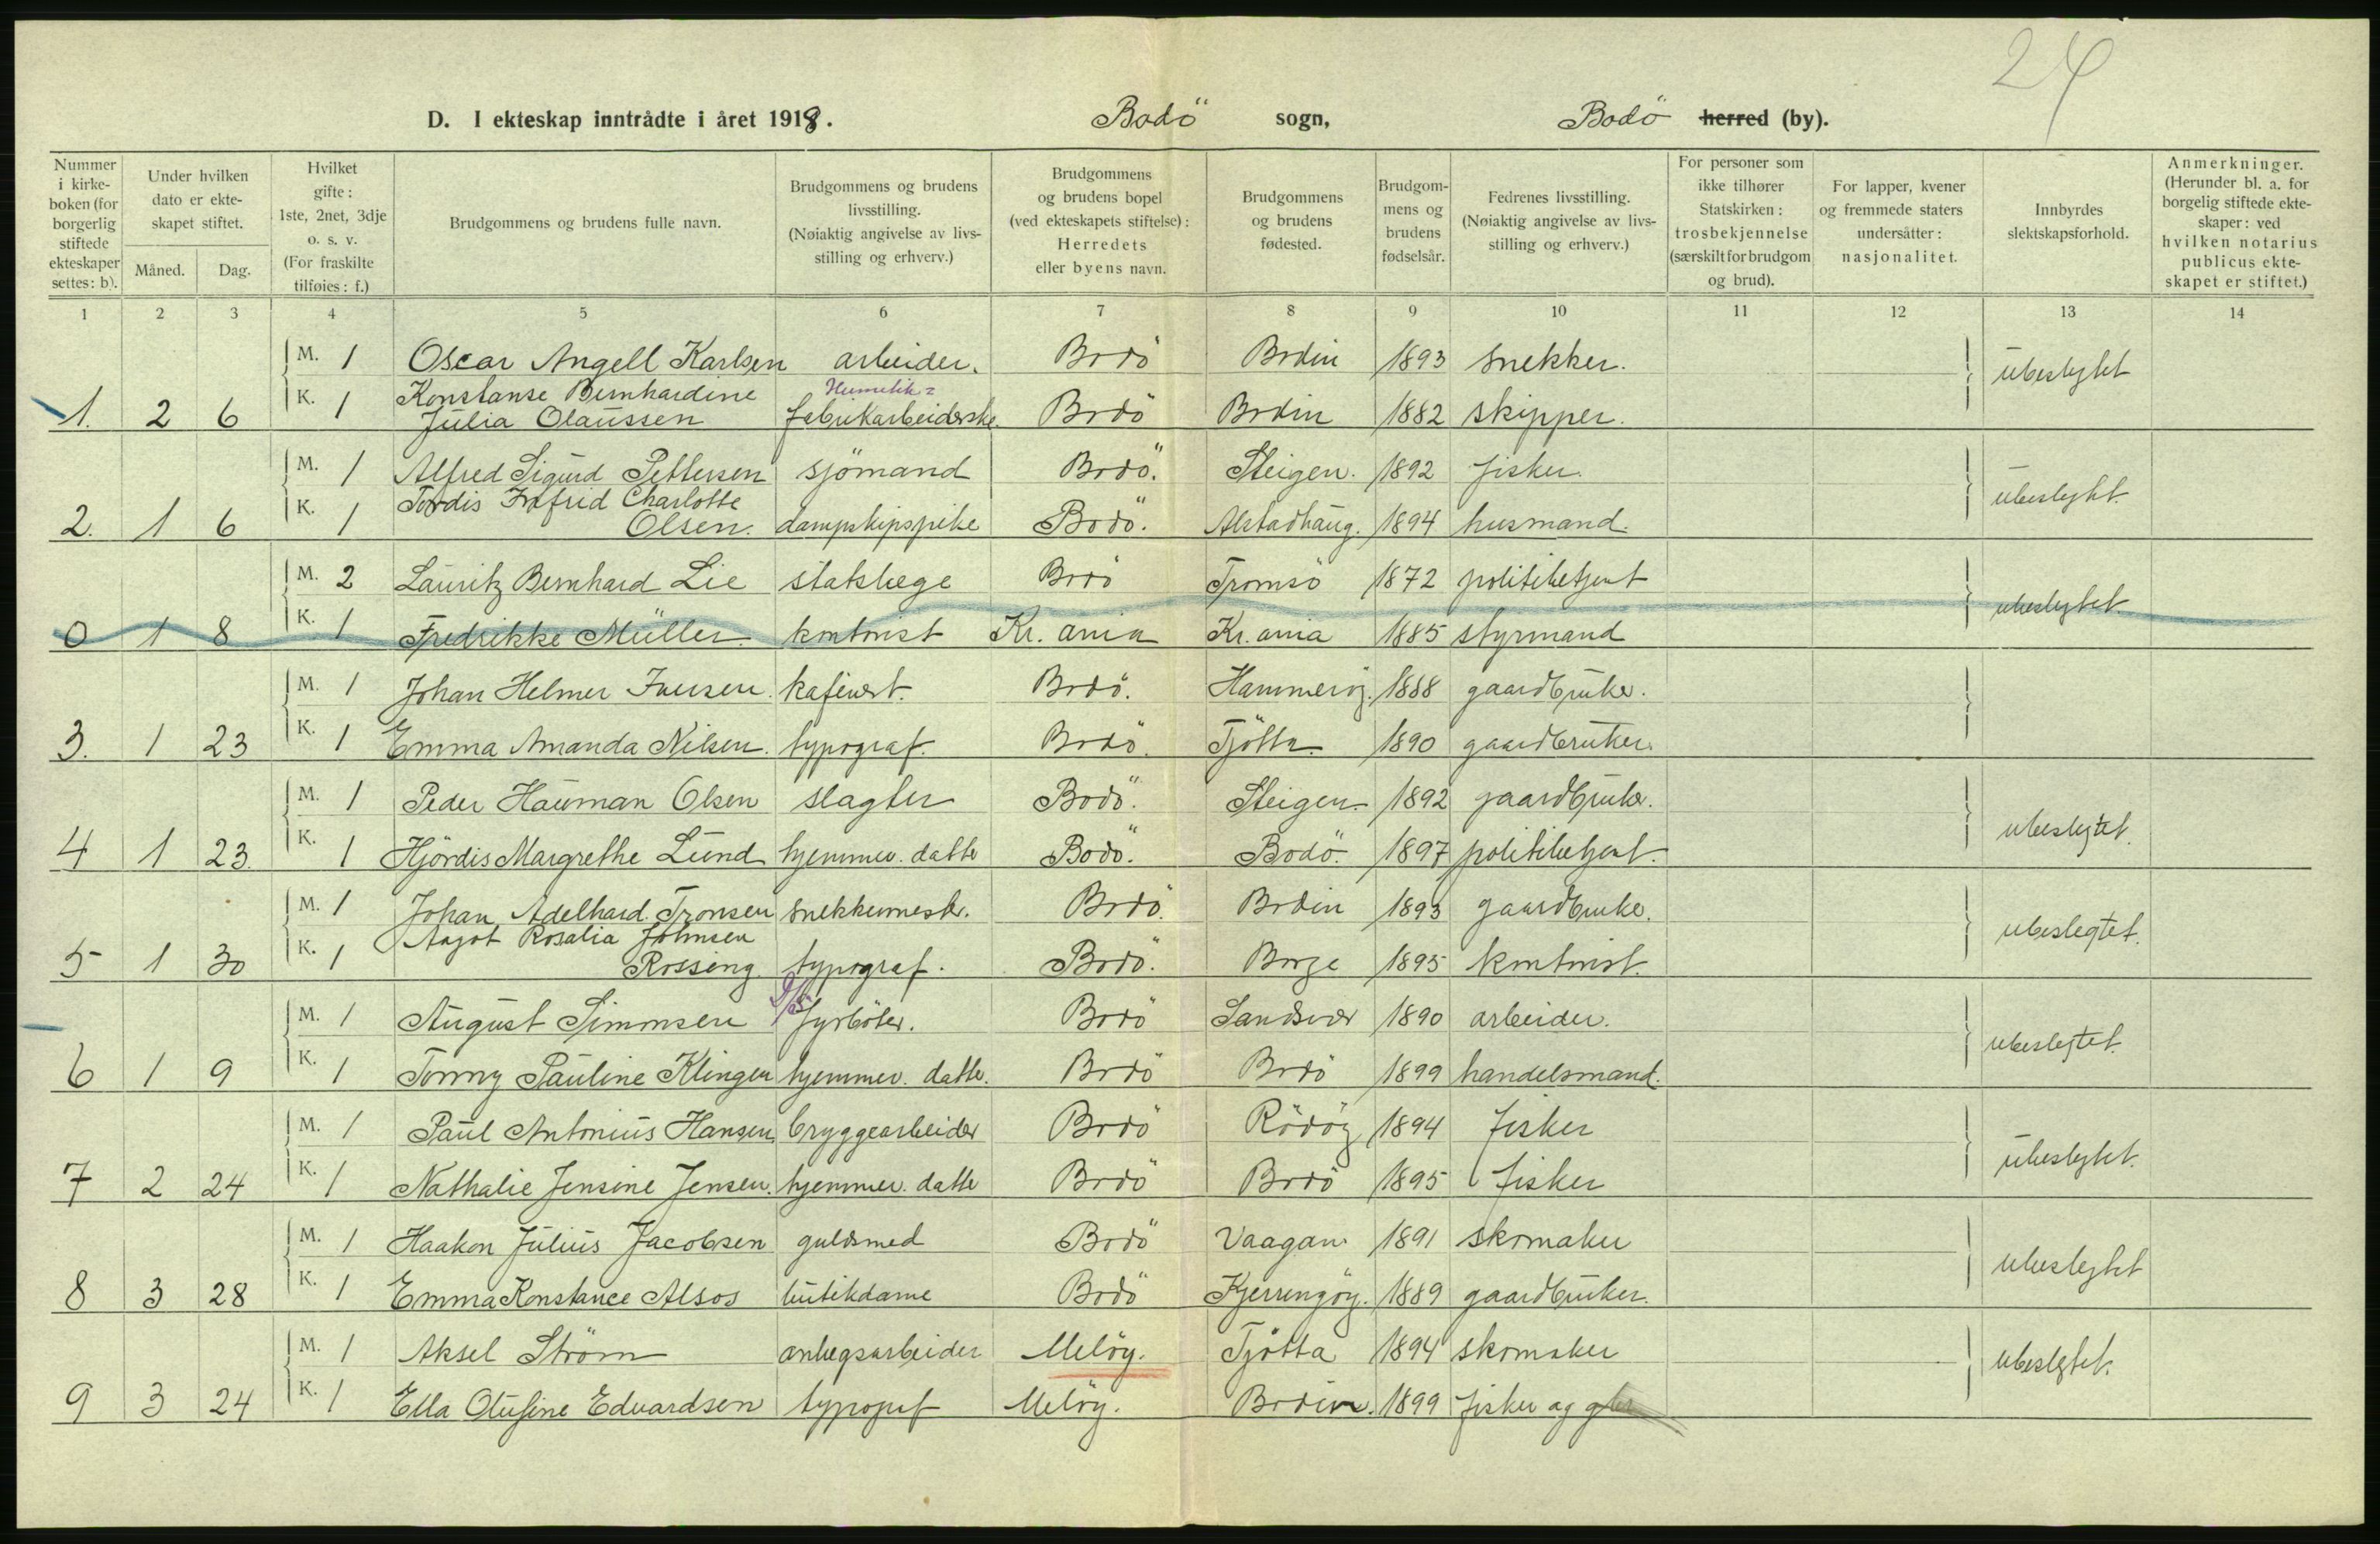 24
D. I ekteskap inntrådte i året 1918. Bodö sogn, Bodö herred (by).
Nummer i kirkeboken (for borgerlig stiftede ekteskaper settes: b).
Under hvilken dato er ekteskapet stiftet.
Måned. Dag.
Hvilket gifte: 1ste, 2net, 3dje o. s. v. (For fraskilte tilføies: f.)
Brudgommens og brudens fulle navn.
Brudgommens og brudens livsstilling. (Nøiaktig angivelse av livsstilling og erhverv.)
Brudgommens og brudens bopel (ved ekteskapets stiftelse): Herredets eller byens navn.
Brudgommens og brudens fødested.
Brudgommens og brudens fødselsår.
Fedrenes livsstilling. (Nøiaktig angivelse av livsstilling og erhverv.)
For personer som ikke tilhører Statskirken: trosbekjennelse (særskilt for brudgom og brud).
For lapper, kvener og fremmede staters undersåtter: nasjonalitet.
Innbyrdes slektskapsforhold.
Anmerkninger. (Herunder bl. a. for borgelig stiftede ekteskaper: ved hvilken notarius publicus ekteskapet er stiftet.)
1 2 3 4 5 6 7 8 9 10 11 12 13 14
M. 1 Oscar Angell Karlsen arbeider. Bodö Bodin 1893 snekker. ubeslegtet
Konstanse Bernhardine Hermetik=
1. 2 6 K. 1 Julia Olaussen fabrikarbeiderske. Bodö Bodin 1882 skipper.
M. 1 Alfred Sigurd Pettersen sjömand Bodö. Steigen. 1892 fisker. ubeslegtet
Tordis Infrid Charlotte
2. 1 6 K. 1 Olsen. dampskipspike Bodö. Alstadhaug. 1894 husmand.
M. 2 Lauritz Bernhard Lie statslege Bodö Tromsö 1872 politibetjent ubeslegtet
0 1 8 K. 1 Fredrikke Müller. kontorist Kr. ania Kr. ania 1885 styrmand
M. 1 Johan Helmer Iversen. kafevert. Bodö. Hammeröy. 1888 gaardbruker.
3. 1 23 K. 1 Emma Amanda Nilsen. typograf. Bodö. Tjötta. 1890 gaardbruker.
M. 1 Peder Hauman Olsen slagter Bodö. Steigen. 1892 gaardbruker. ubeslegtet.
4 1 23. K. 1 Hjördis Margrethe Lund hjemmev. datter Bodö. Bodö. 1897 politibetjent.
M. 1 Johan Adelhard Tronsen snekkermester. Bodö. Bodin 1893 gaardbruker. ubeslegtet.
Aagot Rosalia Johnsen
5 1 30 K. 1 Rossing. typograf. Bodö. Borge 1895 kontorist.
M. 1 August Simonsen D/S fyrböter. Bodö Sandsvær 1890 arbeider. ubeslegtet.
6 1 9 K. 1 Tonny Pauline Klingen hjemmev. datter. Bodö Bodö 1899 handelsmand.
M. 1 Paul Antonius Hansen bryggearbeider Bodö Rödöy 1894 fisker ubeslegtet.
7 2 24 K. 1 Nathalie Jensine Jensen. hjemmev. datter Bodö Bodö 1895 fisker
M. 1 Haakon Julius Jacobsen guldsmed Bodö Vaagan 1891 skomaker ubeslegtet
8 3 28 K. 1 Emma Konstance Alsos butikdame Bodö Kjerringöy. 1889 gaardbruker.
M. 1 Aksel Ström anlegsarbeider Melöy. Tjötta 1894 skomaker ubeslegtet.
9 3 24 K. 1 Ella Olufine Edvardsen typograf Melöy. Bodin. 1899 fisker og